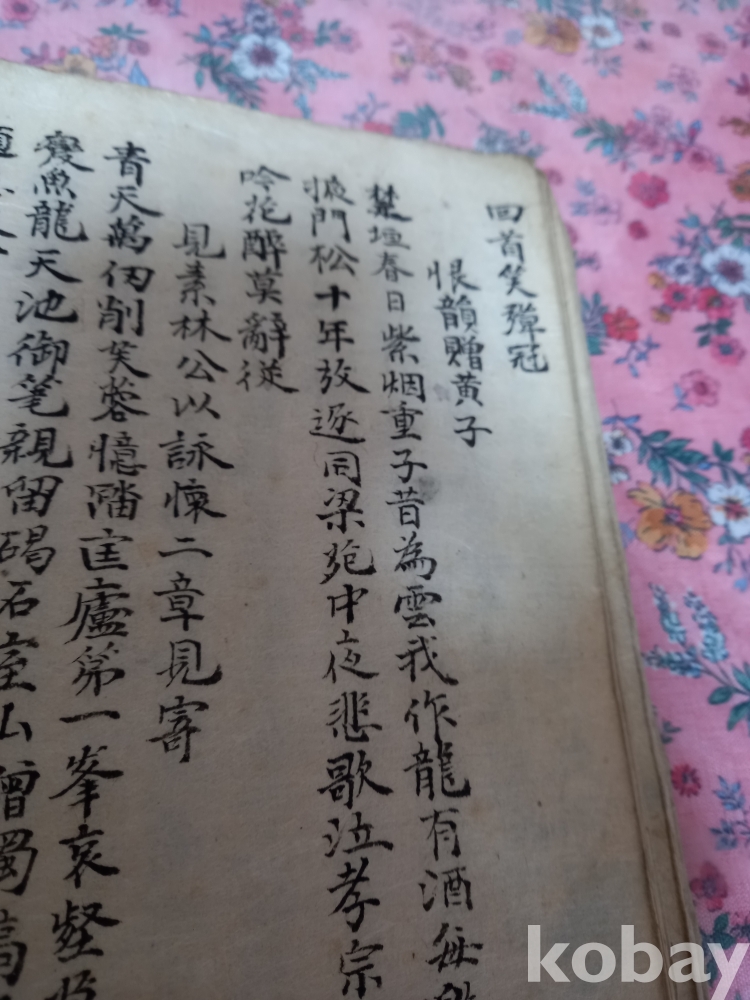 回首笑彈冠
恨韻贈黄子
楚垣春日紫烟重子昔為雲我作龍有酒每
掖門松十年放逐同梁苑中夜悲歌泣孝宗
吟花醉莫辭従
見素林公以詠懐二章見寄
青天萬仞削芙蓉憶踏匡廬第一峯哀壑
變魚龍天池御筆親留碣石室山僧獨
kobay